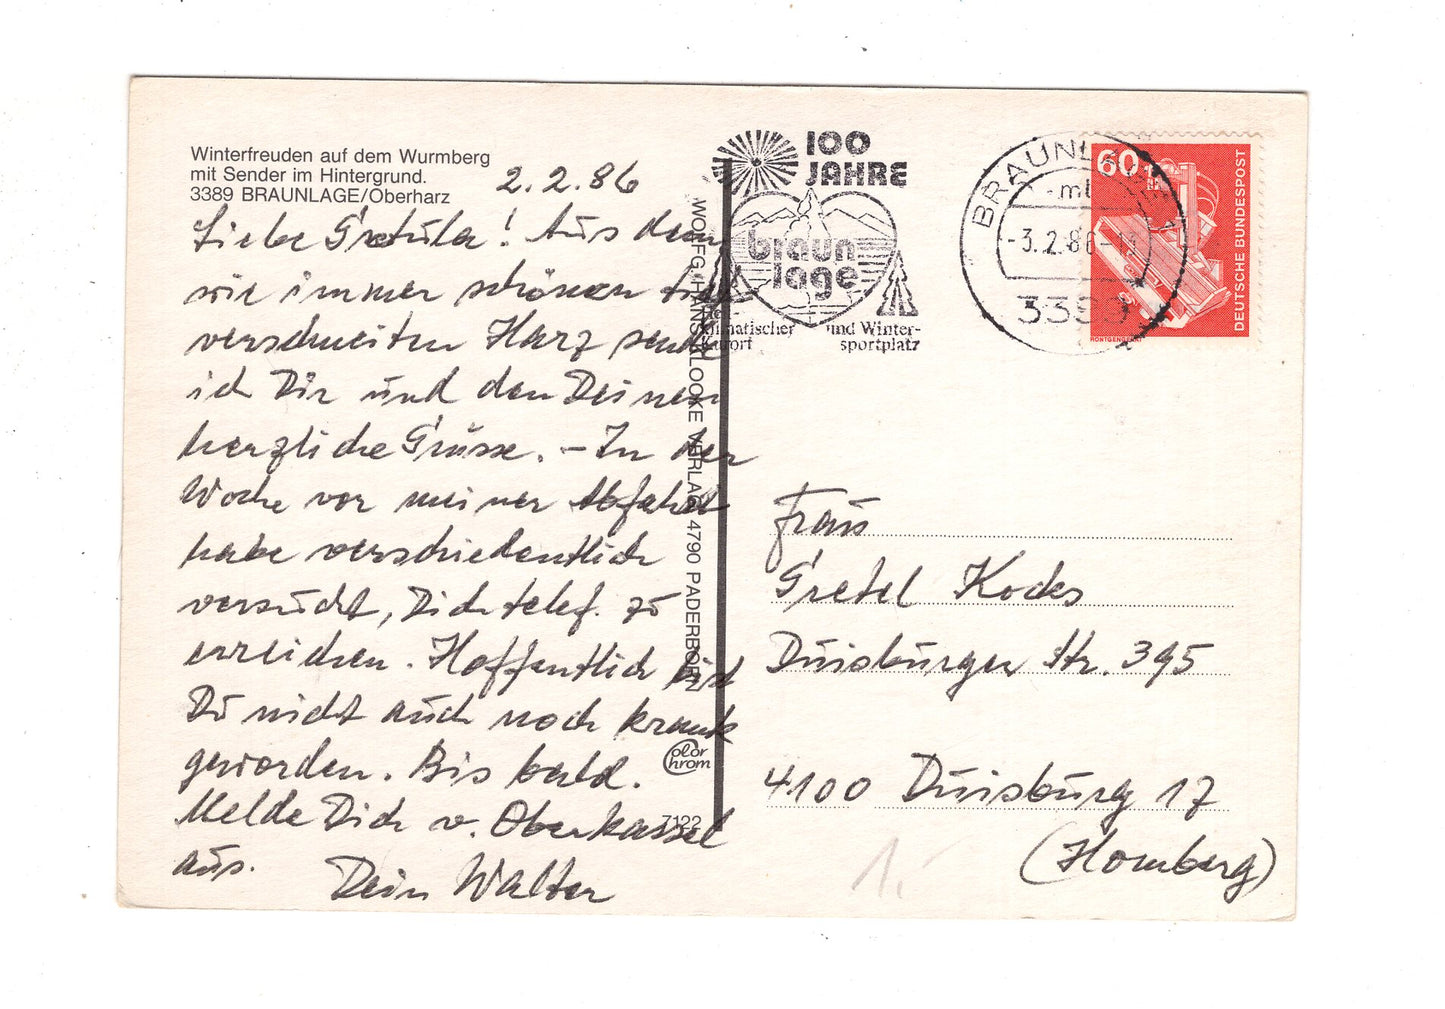 Winterfreuden auf dem Wurmberg
mit Sender im Hintergrund.
3389 BRAUNLAGE/Oberharz
2.2.86
Liebe Gretula! Aus dem
wie immer schönen tief
verschneiten Harz sende
ich Dir und den Deinen
herzliche Grüsse. - In der
Woche vor meiner Abfahrt
habe verschiedentlich
versucht, Dich telef. zu
erreichen. Hoffentlich bist
Du nicht auch noch krank
geworden. Bis bald.
Melde Dich v. Oberkassel
aus.
Dein Walter
WOLFG. HANS KLOCKE VERLAG, 4790 PADERBORN
Color
Chrom
7122
100
JAHRE
braun
lage
Heil-
klimatischer
Kurort
und Winter-
sportplatz
BRAUNLAGE 1
-3.2.86-11
3389
60
DEUTSCHE BUNDESPOST
RÖNTGENGERÄT
Frau
Gretel Kodes
Duisburger Str. 395
4100 Duisburg 17
(Homberg)
1.